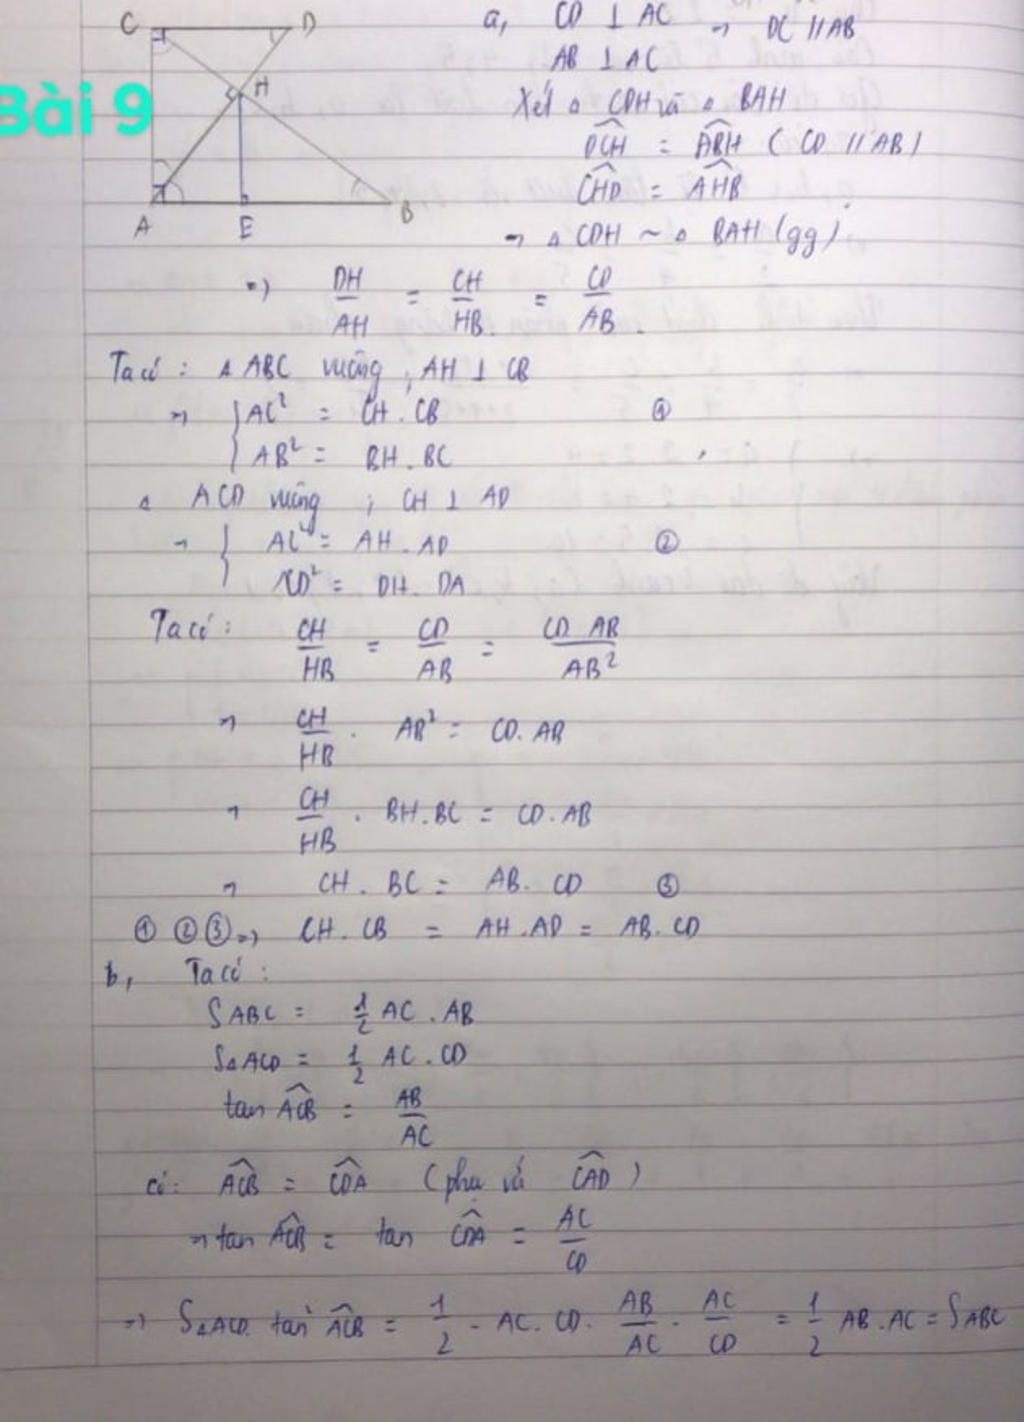 C D
H
Bài 9
A E B
a, CD ⊥ AC ⇒ DC // AB
AB ⊥ AC
Xét △ CDH và △ BAH
DCH = ABH ( CD // AB )
CHD = AHB
⇒ △ CDH ~ △ BAH (gg)
⇒) DH/AH = CH/HB. = CD/AB.
Ta có : △ ABC vuông ; AH ⊥ CB
⇒ { AC² = CH . CB ①
AB² = BH . BC
△ ACD vuông ; CH ⊥ AD
⇒ { AC² = AH . AD ②
CD² = DH . DA
Ta có : CH/HB = CD/AB = CD AB/AB²
⇒ CH/HB . AB² = CD. AB
⇒ CH/HB . BH.BC = CD.AB
⇒ CH . BC = AB. CD ③
① ② ③ ⇒) CH . CB = AH . AD = AB. CD
b, Ta có :
SABC = 1/2 AC . AB
S△ACD = 1/2 AC . CD
tan ACB = AB/AC
có: ACB = CDA (phụ với CAD)
⇒ tan ACB = tan CDA = AC/CD
⇒) S△ACD. tan² ACB = 1/2 . AC. CD. AB/AC . AC/CD = 1/2 AB . AC = SABC